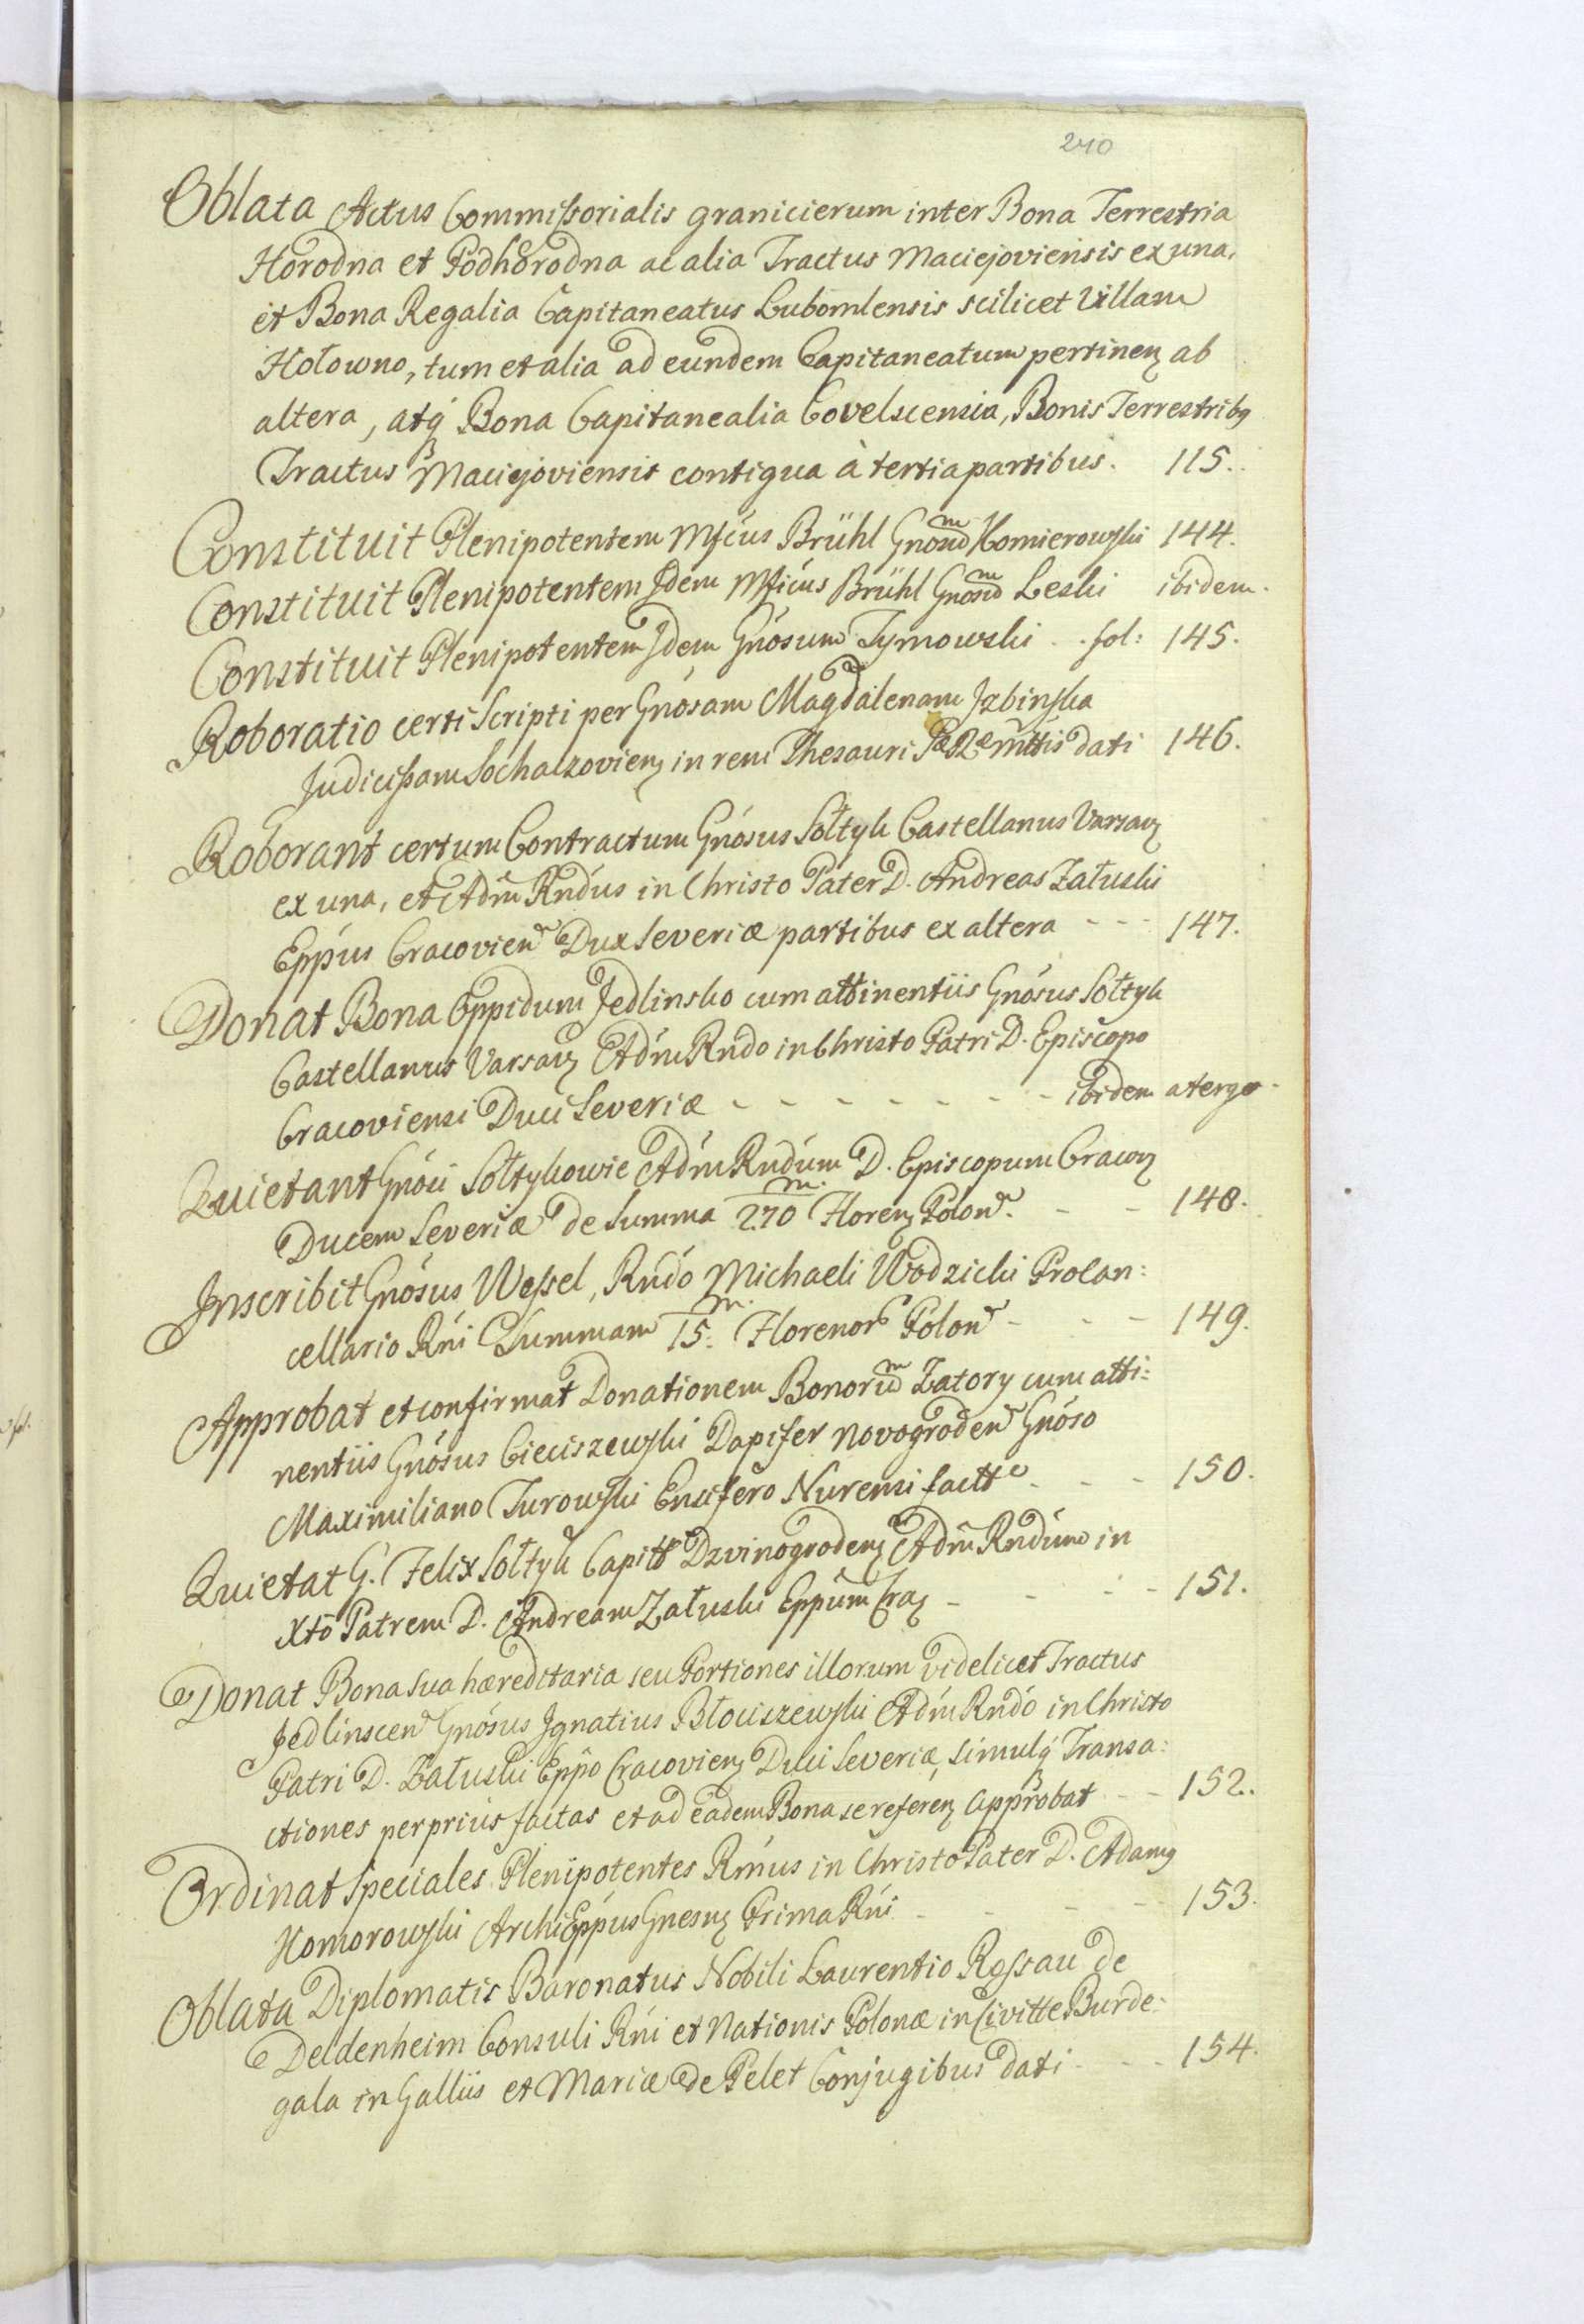 240
Oblata Actus Commissorialis granicierum inter Bona Terrestria
Horodna et Podhorodna ac alia Tractus Maciejoviensis ex una,
et Bona Regalia Capitaneatus Lubomlensis scilicet Villam
Hołowno, tum et alia ad eundem Capitaneatum pertinenȝ ab
altera, atq́ Bona Capitanealia Covelscensia, Bonis Terrestribꝯ
Tractus Maciejoviensis contigua à tertia partibus. 115.
Constituit Plenipotentem Mficus Brühl Gnosum Komierowski 144.
Constituit Plenipotentem Idem Mficus Brühl Gnosum Leski ibidem.
Constituit Plenipotentem Idem Gnosum Tymowski . . fol: 145.
Roboratio certi Scripti per Gnosam Magdalenam Izbinska
Judicissam Sochaczovienȝ in rem Thesauri Sæ Ræ Mttis dati 146.
Roborant certum Contractum Gnosus Sołtyk Castellanus Varsavȝ
ex una, et Adm Rndus in Christo Pater D. Andreas Załuski
Eppus Cracovien Dux Severiæ partibus ex altera - - - 147.
Donat Bona Oppidum Jedlinsko cum attinentiis Gnosus Sołtyk
Castellanus Varsavȝ Adm Rndo in Christo Patri D. Episcopo
Cracoviensi Duci Severiæ - - - - - - - ibidem a tergo -
Quietant Gnoci Sołtykowie Adm Rndum D. Episcopum Cracovȝ
Ducem Severiæ de Summa 270 m. Florenȝ Polon. - - 148.
Inscribit Gnosus Wessel, Rndo Michaeli Wodzicki Procan:
cellario Rni Summam 15. m. Florenor Polon - - - 149.
Approbat et confirmat Donationem Bonorum Zatory cum atti:
nentiis Gnosus Cieciszewski Dapifer Novogroden Gnoso
Maximiliano Turowski Ensifero Nurensi factt - - - 150.
Quietat G. Felix Sołtyk Capitt Dzvinogrodenȝ Adm Rndum in
Xto Patrem D. Andream Załuski Eppum Craȝ - - - - 151.
Donat Bona sua hæreditaria seu Portiones illorum videlicet Tractus
Jedlinscen Gnosus Ignatius Błociszewski Adm Rndo in Christo
Patri D. Załuski Eppo Cracovienȝ Duci Severiæ, simulq́ Transa:
ctiones per prius factas et ad eadem Bona se referenȝ approbat - - 152.
Ordinat Speciales Plenipotentes Rmus in Christo Pater D. Adamꝯ
Komorowski ArchiEppus Gnesnȝ Prima Rni - - - - 153.
Oblata Diplomatis Baronatus Nobili Laurentio Rossau de
Deldenheim Consuli Rni et Nationis Polonæ in Civitte Burde:
gala in Galliis et Mariæ de Pelet Conjugibus dati - - - 154.